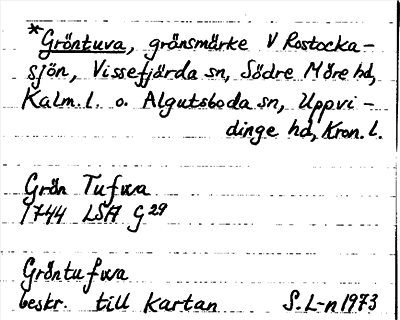 *Gröntuva, gränsmärke V Rostocka-
sjön, Vissefjärda sn, Södre Möre hd,
Kalm. l. o. Algutsboda sn, Uppvi-
dinge hd, Kron. l.
Grön Tufwa
1744 LSA G29
Gröntufwa
beskr. till kartan S. L-n 1973